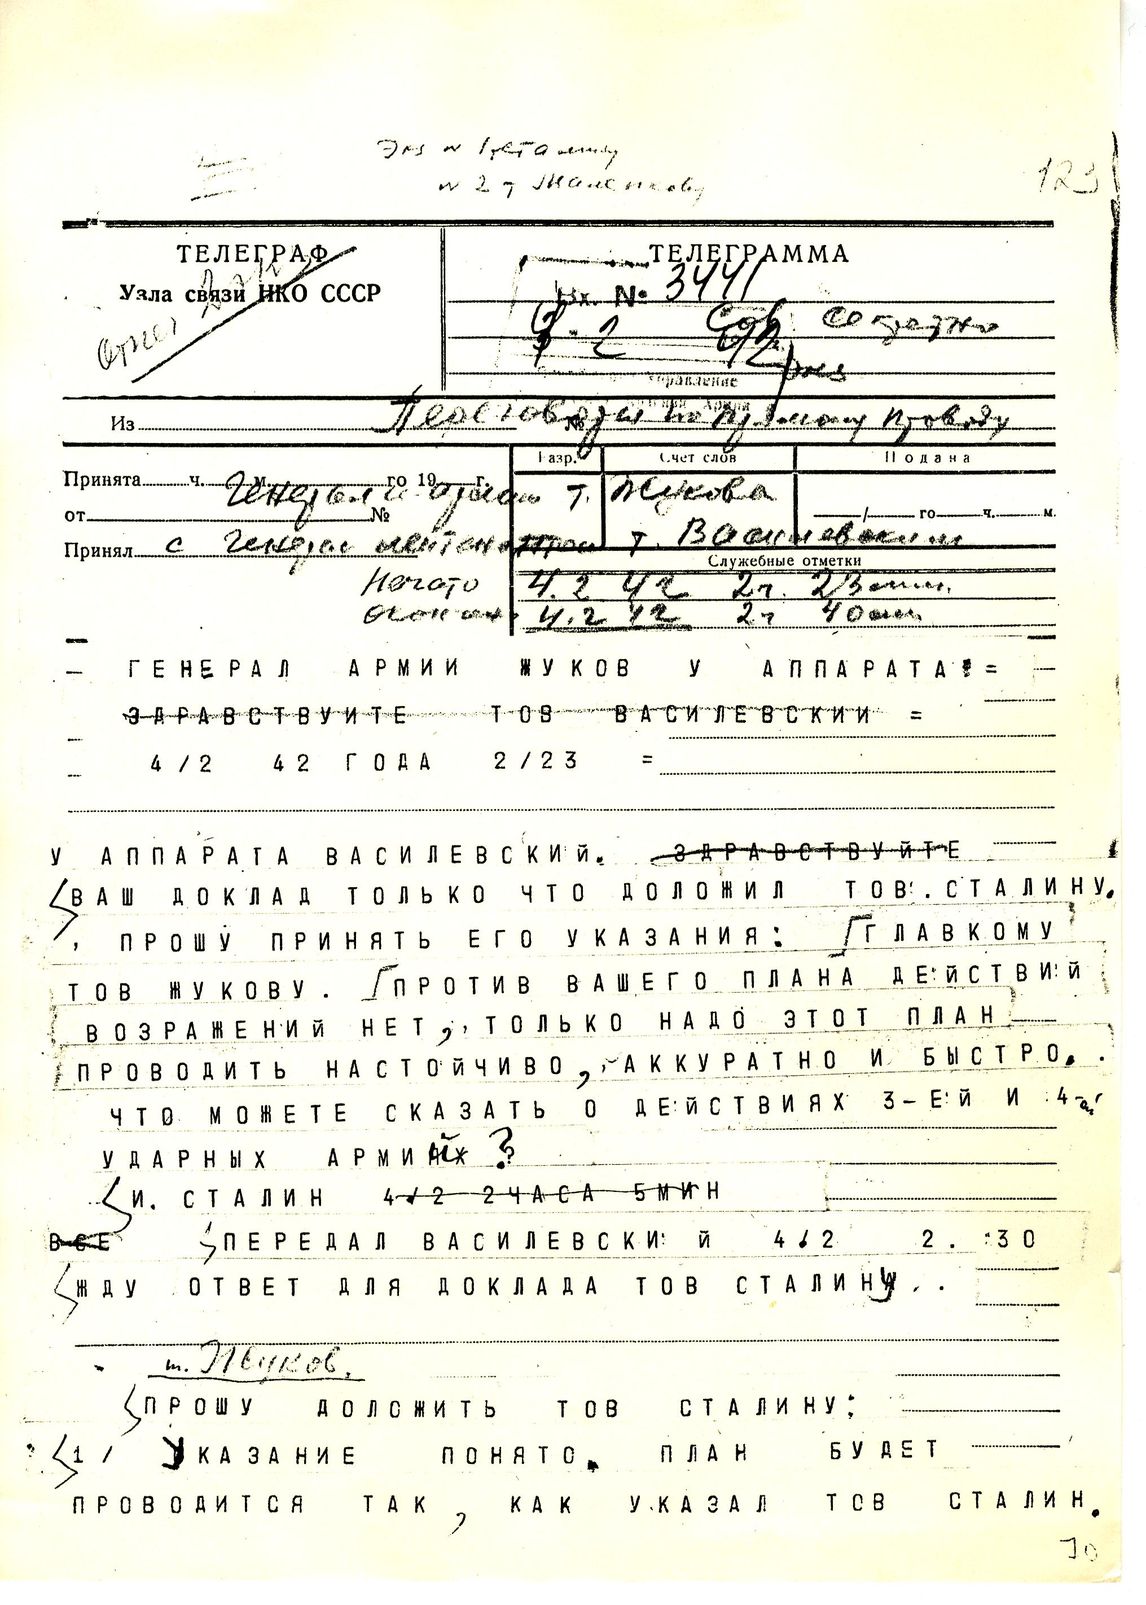 Экз № 1 т Сталину
№ 2 т Маленкову
123
ТЕЛЕГРАФ
Узла связи НКО СССР
ТЕЛЕГРАММА
Вх. № 3441
Сов секретно
Управление
Из Переговоры по прямому проводу
Разр. Счет слов Подана
Принята ч. м. го 19 г.
Генерала армии т. Жукова
от №
/ го ч. м.
Принял с генерал лейтенантом т. Василевским
Служебные отметки
Начато 4.2 42 2ч. 23 мин.
Окончен. 4.2 42 2ч 40 мин
ГЕНЕРАЛ АРМИИ ЖУКОВ У АППАРАТА =
ЗДРАВСТВУИТЕ ТОВ ВАСИЛЕВСКИИ =
4/2 42 ГОДА 2/23 =
У АППАРАТА ВАСИЛЕВСКИЙ. ЗДРАВСТВУЙТЕ
ВАШ ДОКЛАД ТОЛЬКО ЧТО ДОЛОЖИЛ ТОВ.СТАЛИНУ.
, ПРОШУ ПРИНЯТЬ ЕГО УКАЗАНИЯ: ГЛАВКОМУ
ТОВ ЖУКОВУ. ПРОТИВ ВАШЕГО ПЛАНА ДЕЙСТВИЙ
ВОЗРАЖЕНИЙ НЕТ, ТОЛЬКО НАДО ЭТОТ ПЛАН
ПРОВОДИТЬ НАСТОЙЧИВО, АККУРАТНО И БЫСТРО. .
ЧТО МОЖЕТЕ СКАЗАТЬ О ДЕЙСТВИЯХ 3-ЕЙ И 4-ой
УДАРНЫХ АРМИЙ ?
И. СТАЛИН 4/2 2ЧАСА 5МИН
ВСЕ ПЕРЕДАЛ ВАСИЛЕВСКИЙ 4/2 2. 30
ЖДУ ОТВЕТ ДЛЯ ДОКЛАДА ТОВ СТАЛИНУ . .
т. Жуков.
ПРОШУ ДОЛОЖИТЬ ТОВ СТАЛИНУ:
1/ УКАЗАНИЕ ПОНЯТО. ПЛАН БУДЕТ
ПРОВОДИТСЯ ТАК, КАК УКАЗАЛ ТОВ СТАЛИН.
70